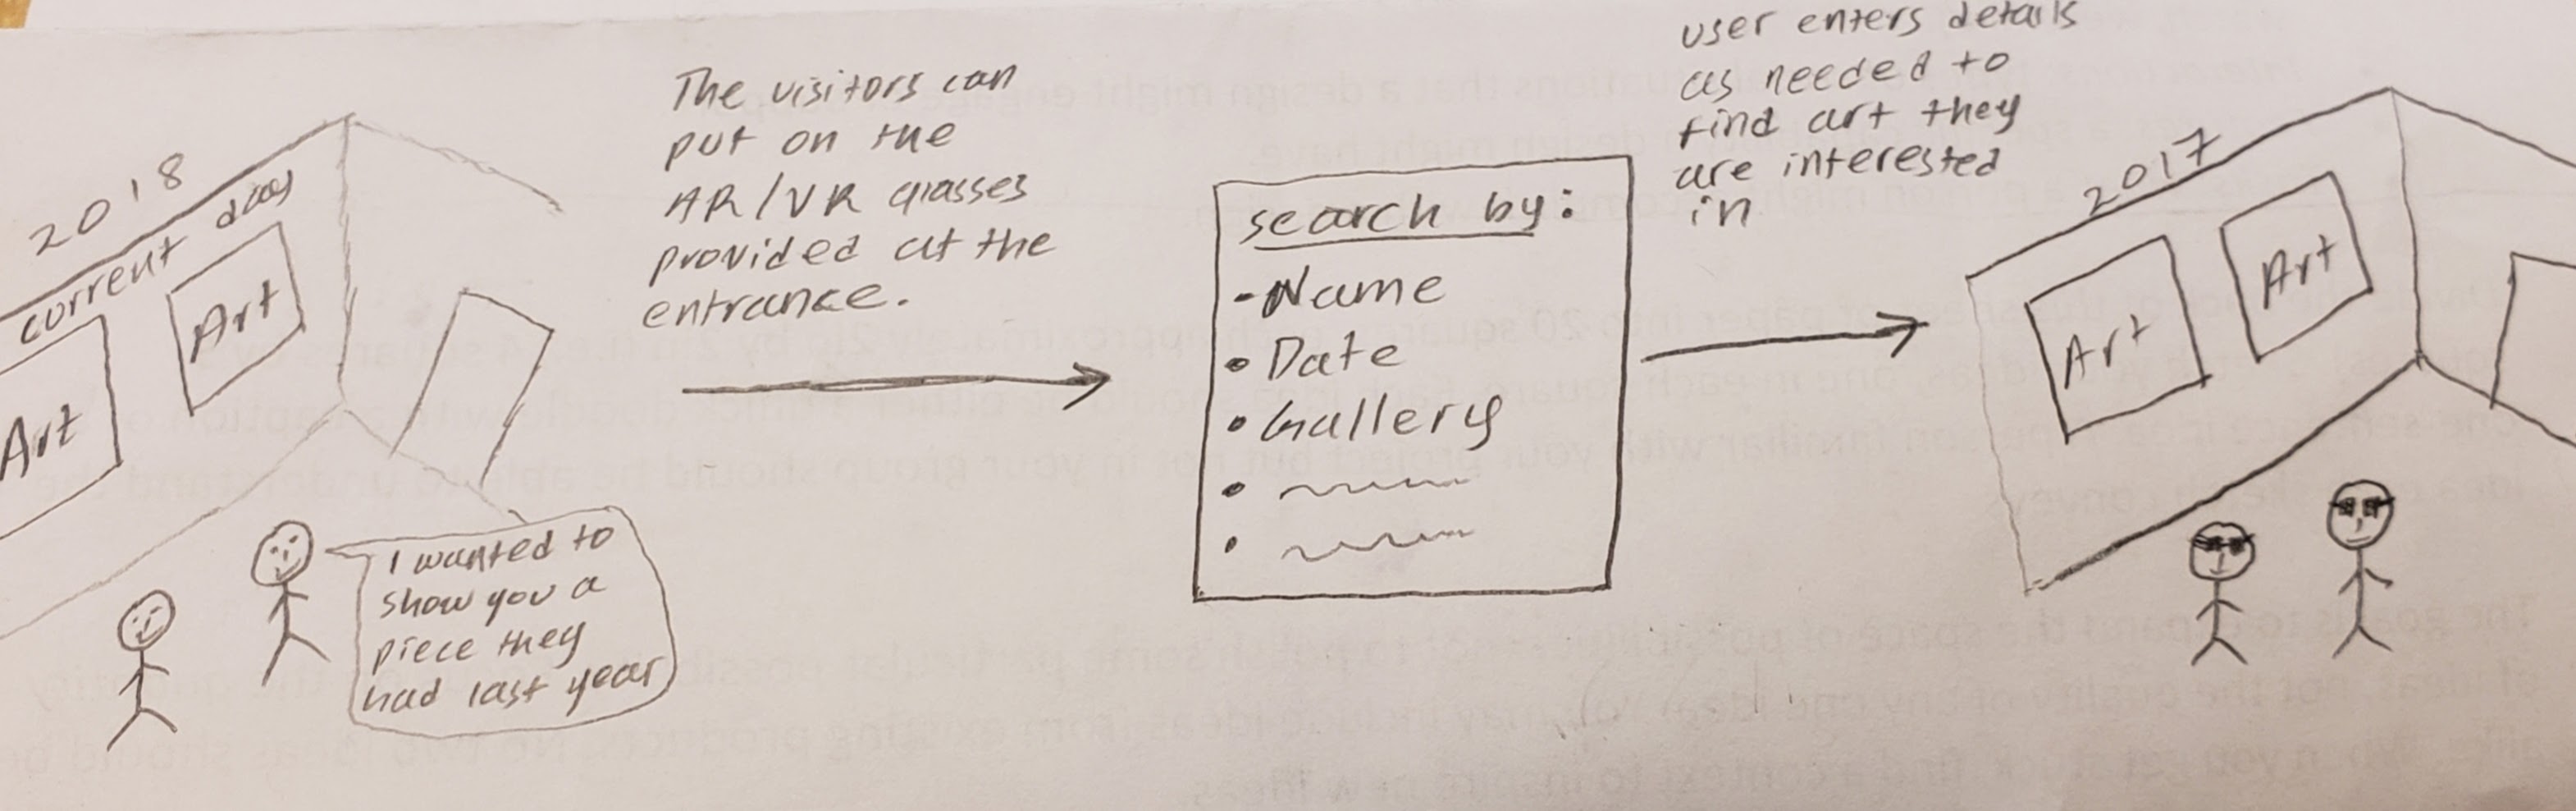 2018
current day
Art
Art
I wanted to
show you a
piece they
had last year
The visitors can
put on the
AR/VR glasses
provided at the
entrance.
search by:
-Name
• Date
• Gallery
user enters details
as needed to
find art they
are interested
in
2017
Art
Art